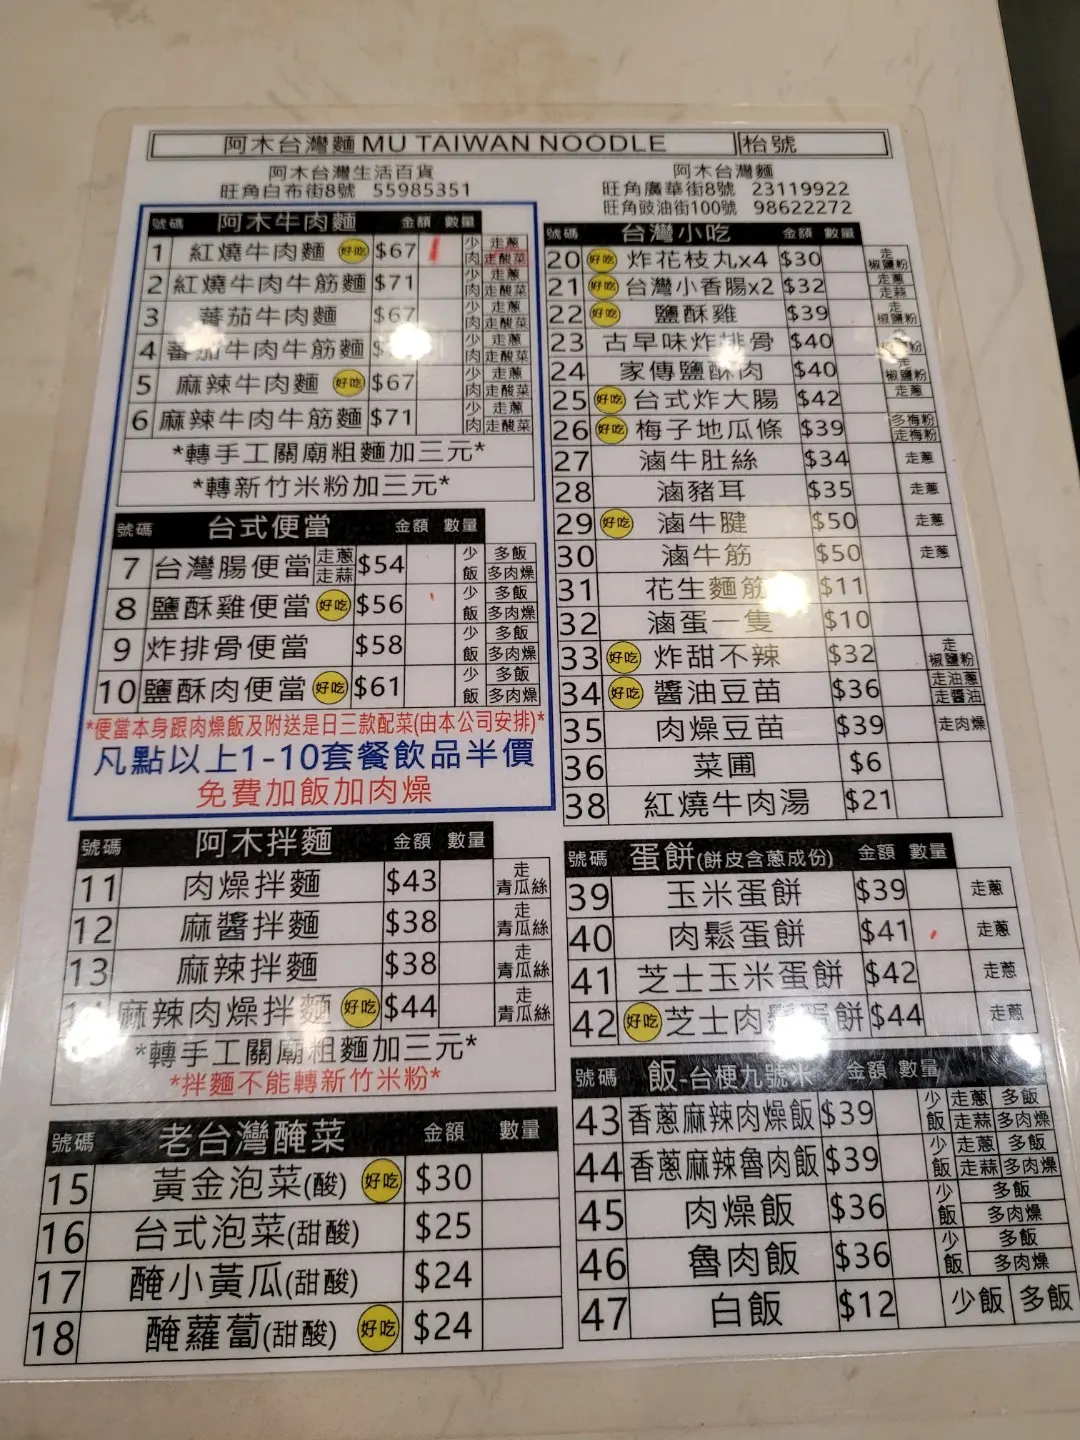 阿木台灣麵 MU TAIWAN NOODLE 枱號
阿木台灣生活百貨
旺角白布街8號 55985351
阿木台灣麵
旺角廣華街8號 23119922
旺角豉油街100號 98622272
號碼 阿木牛肉麵 金額 數量
1 紅燒牛肉麵 好吃 $67 少肉 走蔥 走酸菜
2 紅燒牛肉牛筋麵 $71 少肉 走蔥 走酸菜
3 蕃茄牛肉麵 $67 少肉 走蔥 走酸菜
4 蕃茄牛肉牛筋麵 少肉 走蔥 走酸菜
5 麻辣牛肉麵 好吃 $67 少肉 走蔥 走酸菜
6 麻辣牛肉牛筋麵 $71 少肉 走蔥 走酸菜
*轉手工關廟粗麵加三元*
*轉新竹米粉加三元*
號碼 台式便當 金額 數量
7 台灣腸便當 走蔥 走蒜 $54 少飯 多飯 多肉燥
8 鹽酥雞便當 好吃 $56 少飯 多飯 多肉燥
9 炸排骨便當 $58 少飯 多飯 多肉燥
10 鹽酥肉便當 好吃 $61 少飯 多飯 多肉燥
*便當本身跟肉燥飯及附送是日三款配菜(由本公司安排)*
凡點以上1-10套餐飲品半價
免費加飯加肉燥
號碼 阿木拌麵 金額 數量
11 肉燥拌麵 $43 走青瓜絲
12 麻醬拌麵 $38 走青瓜絲
13 麻辣拌麵 $38 走青瓜絲
14 麻辣肉燥拌麵 好吃 $44 走青瓜絲
*轉手工關廟粗麵加三元*
*拌麵不能轉新竹米粉*
號碼 老台灣醃菜 金額 數量
15 黃金泡菜(酸) 好吃 $30
16 台式泡菜(甜酸) $25
17 醃小黃瓜(甜酸) $24
18 醃蘿蔔(甜酸) 好吃 $24
號碼 台灣小吃 金額 數量
20 好吃 炸花枝丸x4 $30 走椒鹽粉
21 好吃 台灣小香腸x2 $32 走蔥 走蒜
22 好吃 鹽酥雞 $39 走椒鹽粉
23 古早味炸排骨 $40 粉
24 家傳鹽酥肉 $40 走椒鹽粉
25 好吃 台式炸大腸 $42 走蔥
26 好吃 梅子地瓜條 $39 多梅粉 走梅粉
27 滷牛肚絲 $34 走蔥
28 滷豬耳 $35 走蔥
29 好吃 滷牛腱 $50 走蔥
30 滷牛筋 $50 走蔥
31 花生麵筋 $11
32 滷蛋一隻 $10
33 好吃 炸甜不辣 $32 走椒鹽粉
34 好吃 醬油豆苗 $36 走油蔥 走醬油
35 肉燥豆苗 $39 走肉燥
36 菜圃 $6
38 紅燒牛肉湯 $21
號碼 蛋餅(餅皮含蔥成份) 金額 數量
39 玉米蛋餅 $39 走蔥
40 肉鬆蛋餅 $41 走蔥
41 芝士玉米蛋餅 $42 走蔥
42 好吃 芝士肉鬆蛋餅 $44 走蔥
號碼 飯-台梗九號米 金額 數量
43 香蔥麻辣肉燥飯 $39 少飯 走蔥 多飯 走蒜 多肉燥
44 香蔥麻辣魯肉飯 $39 少飯 走蔥 多飯 走蒜 多肉燥
45 肉燥飯 $36 少飯 多飯 多肉燥
46 魯肉飯 $36 少飯 多飯 多肉燥
47 白飯 $12 少飯 多飯